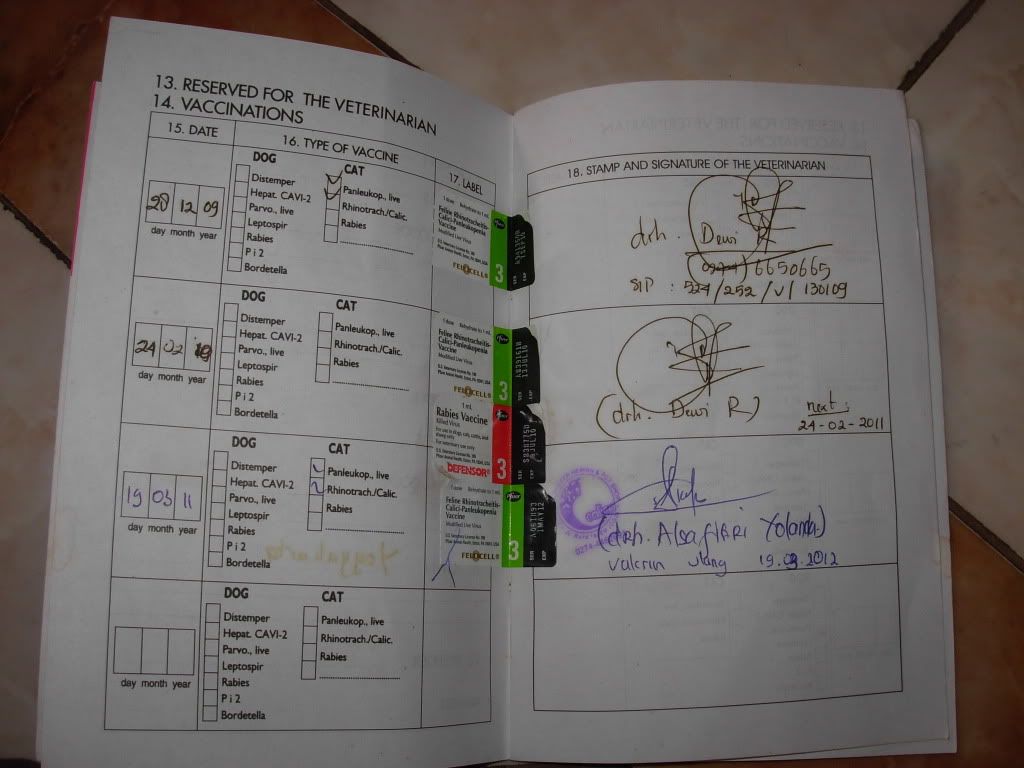 13. RESERVED FOR THE VETERINARIAN
14. VACCINATIONS
15. DATE
16. TYPE OF VACCINE
17. LABEL
18. STAMP AND SIGNATURE OF THE VETERINARIAN
28 12 09
day month year
DOG
Distemper
Hepat. CAVI-2
Parvo., live
Leptospir
Rabies
P i 2
Bordetella
CAT
Panleukop., live
Rhinotrach./Calic.
Rabies
1 dose Rehydrate to 1 mL
Feline Rhinotracheitis-
Calici-Panleukopenia
Vaccine
Modified Live Virus
FELOCELL®
3
Pfizer
drh. Dewi
6650665
SIP : 524/252/V/130109
24 02 10
day month year
DOG
Distemper
Hepat. CAVI-2
Parvo., live
Leptospir
Rabies
P i 2
Bordetella
CAT
Panleukop., live
Rhinotrach./Calic.
Rabies
1 dose Rehydrate to 1 mL
Feline Rhinotracheitis-
Calici-Panleukopenia
Vaccine
Modified Live Virus
FELOCELL®
3
Pfizer
1 mL
Rabies Vaccine
Killed Virus
For use in dogs, cats, cattle, and
sheep only
For veterinary use only
DEFENSOR®
3
(drh. Dewi R)
next :
24-02-2011
19 03 11
day month year
DOG
Distemper
Hepat. CAVI-2
Parvo., live
Leptospir
Rabies
P i 2
Bordetella
CAT
Panleukop., live
Rhinotrach./Calic.
Rabies
1 dose Rehydrate to 1 mL
Feline Rhinotracheitis-
Calici-Panleukopenia
Vaccine
Modified Live Virus
FELOCELL®
3
Pfizer
1MAY12
(drh.
19.03.2012
day month year
DOG
Distemper
Hepat. CAVI-2
Parvo., live
Leptospir
Rabies
P i 2
Bordetella
CAT
Panleukop., live
Rhinotrach./Calic.
Rabies